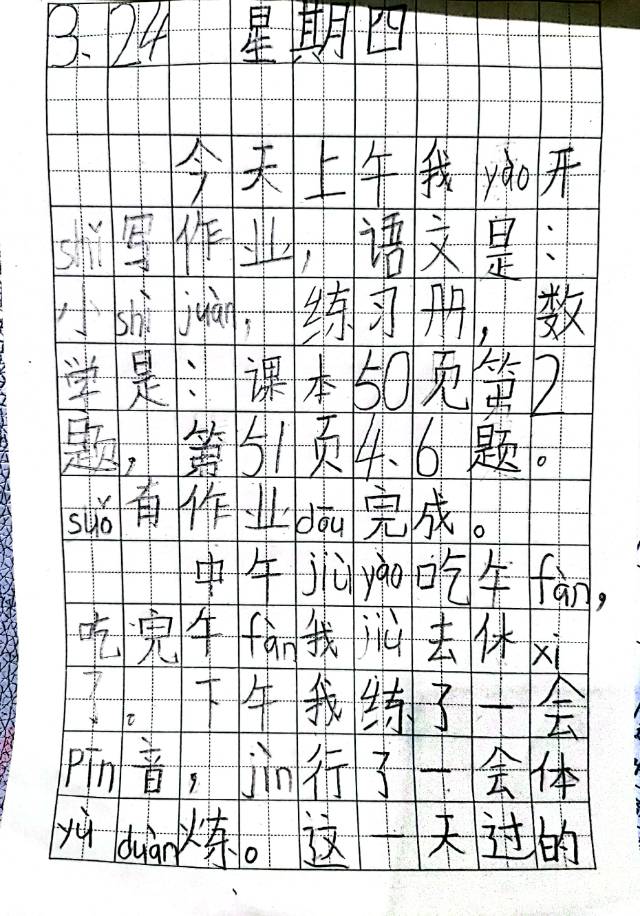 3.24 星期四
今天上午我yào开
shǐ写作业，语文是：
小shì juàn，练习册，数
学是：课本50页第2
题，第51页4、6题。
suǒ有作业dōu完成。
中午jiùyào吃午fàn，
吃完午fàn我jiù去休xi
了。下午我练了一会
Pīn音，jìn行了一会体
yù duàn炼。这一天过的